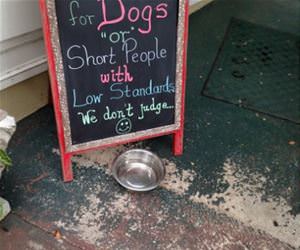 for Dogs
"or"
Short People
with
Low Standards
We don't judge...